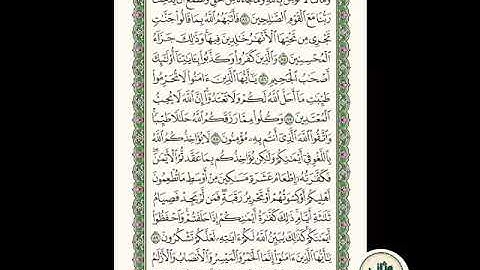 وَمَا لَنَا لَا نُؤْمِنُ بِٱللَّهِ وَمَا جَآءَنَا مِنَ ٱلْحَقِّ وَنَطْمَعُ أَن يُدْخِلَنَا
رَبُّنَا مَعَ ٱلْقَوْمِ ٱلصَّٰلِحِينَ ۝ فَأَثَٰبَهُمُ ٱللَّهُ بِمَا قَالُوا۟ جَنَّٰتٍ
تَجْرِى مِن تَحْتِهَا ٱلْأَنْهَٰرُ خَٰلِدِينَ فِيهَا وَذَٰلِكَ جَزَآءُ
ٱلْمُحْسِنِينَ ۝ وَٱلَّذِينَ كَفَرُوا۟ وَكَذَّبُوا۟ بِـَٔايَٰتِنَآ أُو۟لَٰٓئِكَ
أَصْحَٰبُ ٱلْجَحِيمِ ۝ يَٰٓأَيُّهَا ٱلَّذِينَ ءَامَنُوا۟ لَا تُحَرِّمُوا۟
طَيِّبَٰتِ مَآ أَحَلَّ ٱللَّهُ لَكُمْ وَلَا تَعْتَدُوٓا۟ إِنَّ ٱللَّهَ لَا يُحِبُّ
ٱلْمُعْتَدِينَ ۝ وَكُلُوا۟ مِمَّا رَزَقَكُمُ ٱللَّهُ حَلَٰلًا طَيِّبًا
وَٱتَّقُوا۟ ٱللَّهَ ٱلَّذِىٓ أَنتُم بِهِۦ مُؤْمِنُونَ ۝ لَا يُؤَاخِذُكُمُ ٱللَّهُ
بِٱللَّغْوِ فِىٓ أَيْمَٰنِكُمْ وَلَٰكِن يُؤَاخِذُكُم بِمَا عَقَّدتُّمُ ٱلْأَيْمَٰنَ
فَكَفَّٰرَتُهُۥٓ إِطْعَامُ عَشَرَةِ مَسَٰكِينَ مِنْ أَوْسَطِ مَا تُطْعِمُونَ
أَهْلِيكُمْ أَوْ كِسْوَتُهُمْ أَوْ تَحْرِيرُ رَقَبَةٍ فَمَن لَّمْ يَجِدْ فَصِيَامُ
ثَلَٰثَةِ أَيَّامٍ ذَٰلِكَ كَفَّٰرَةُ أَيْمَٰنِكُمْ إِذَا حَلَفْتُمْ وَٱحْفَظُوٓا۟
أَيْمَٰنَكُمْ كَذَٰلِكَ يُبَيِّنُ ٱللَّهُ لَكُمْ ءَايَٰتِهِۦ لَعَلَّكُمْ تَشْكُرُونَ ۝
يَٰٓأَيُّهَا ٱلَّذِينَ ءَامَنُوٓا۟ إِنَّمَا ٱلْخَمْرُ وَٱلْمَيْسِرُ وَٱلْأَنصَابُ وَٱلْأَزْلَٰمُ